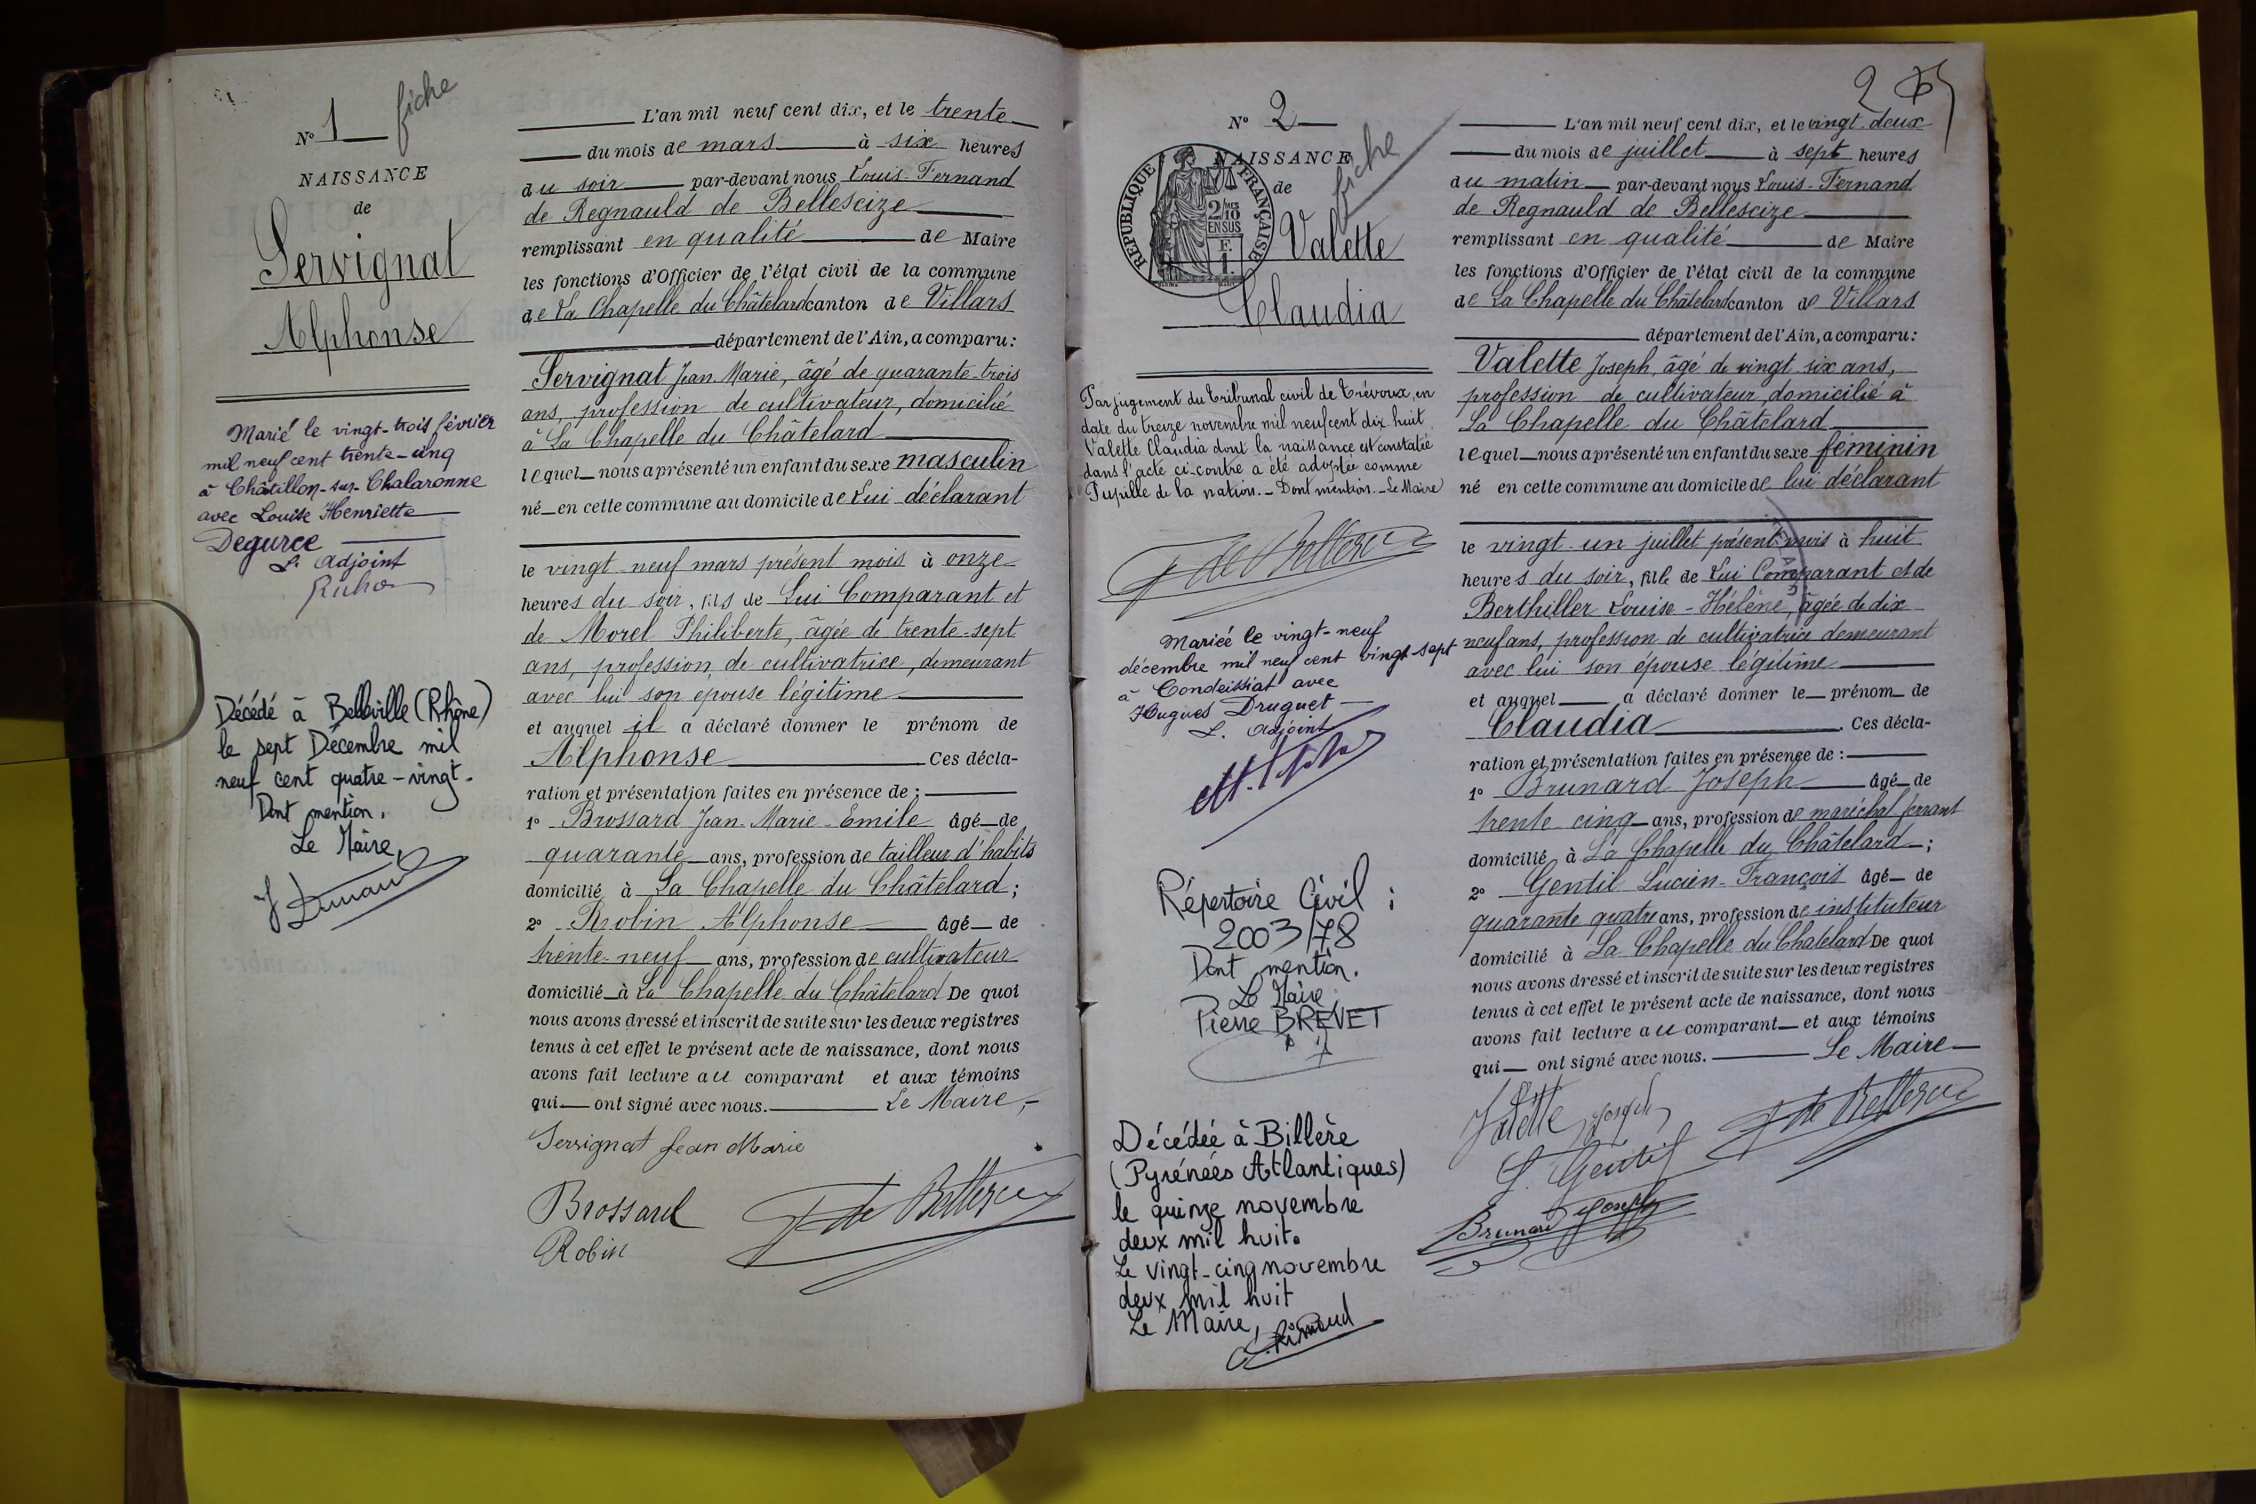 N° 1
fiche
NAISSANCE
de
Servignat
Alphonse
Marié le vingt-trois février
mil neuf cent trente-cinq
à Châtillon-sur-Chalaronne
avec Louise Henriette
Degurce
L' adjoint
Décédé à Belleville (Rhône)
le sept Décembre mil
neuf cent quatre-vingt.
Dont mention.
Le Maire,
L'an mil neuf cent dix, et le trente
du mois de mars à six heures
du soir par-devant nous Louis-Fernand
de Regnauld de Bellescize
remplissant en qualité de Maire
les fonctions d'Officier de l'état civil de la commune
de La Chapelle du Châtelard canton de Villars
département de l'Ain, a comparu :
Servignat Jean Marie, âgé de quarante-trois
ans, profession de cultivateur, domicilié
à La Chapelle du Châtelard
lequel nous a présenté un enfant du sexe masculin
né en cette commune au domicile de Lui déclarant
le vingt neuf mars présent mois à onze
heures du soir, fils de Lui Comparant et
de Morel Philiberte, âgée de trente-sept
ans, profession de cultivatrice, demeurant
avec lui son épouse légitime
et auquel il a déclaré donner le prénom de
Alphonse Ces décla-
ration et présentation faites en présence de :
1° Brossard Jean-Marie-Emile âgé de
quarante ans, profession de tailleur d'habits
domicilié à La Chapelle du Châtelard ;
2° Robin Alphonse âgé de
trente-neuf ans, profession de cultivateur
domicilié à La Chapelle du Châtelard De quoi
nous avons dressé et inscrit de suite sur les deux registres
tenus à cet effet le présent acte de naissance, dont nous
avons fait lecture au comparant et aux témoins
qui ont signé avec nous. Le Maire,
Servignat Jean Marie
Brossard
Robin
F de Bellescize
2
N° 2
fiche
NAISSANCE
de
RÉPUBLIQUE FRANÇAISE
2/10
EN SUS
F.
1.
Valette
Claudia
Par jugement du Tribunal civil de Trévoux, en
date du treize novembre mil neuf cent dix huit
Valette Claudia dont la naissance est constatée
dans l'acte ci-contre a été adoptée comme
Pupille de la nation. - Dont mention. - Le Maire
F de Bellescize
Mariée le vingt-neuf
décembre mil neuf cent vingt sept
à Condeissiat avec
Hugues Druguet
L. adjoint
Répertoire Civil :
2003/78
Dont mention.
Le Maire,
Pierre BREVET
Décédée à Billère
(Pyrénées Atlantiques)
le quinze novembre
deux mil huit.
Le vingt-cinq novembre
deux mil huit
Le Maire,
L'an mil neuf cent dix, et le vingt deux
du mois de juillet à sept heures
du matin par-devant nous Louis-Fernand
de Regnauld de Bellescize
remplissant en qualité de Maire
les fonctions d'Officier de l'état civil de la commune
de La Chapelle du Châtelard canton de Villars
département de l'Ain, a comparu :
Valette Joseph, âgé de vingt six ans,
profession de cultivateur, domicilié à
La Chapelle du Châtelard
lequel nous a présenté un enfant du sexe féminin
né en cette commune au domicile de lui déclarant
le vingt un juillet présent mois à huit
heures du soir, fille de Lui Comparant et de
Berthiller Louise-Hélène, âgée de dix
neuf ans, profession de cultivatrice demeurant
avec lui son épouse légitime
et auquel a déclaré donner le prénom de
Claudia. Ces décla-
ration et présentation faites en présence de :
1° Brunard Joseph âgé de
trente cinq ans, profession de maréchal ferrant
domicilié à La Chapelle du Châtelard ;
2° Gentil Lucien-François âgé de
quarante quatre ans, profession de instituteur
domicilié à La Chapelle du Chatelard De quoi
nous avons dressé et inscrit de suite sur les deux registres
tenus à cet effet le présent acte de naissance, dont nous
avons fait lecture au comparant et aux témoins
qui ont signé avec nous. Le Maire
Valette Joseph
F de Bellescize
L. Gentil
Brunard Joseph